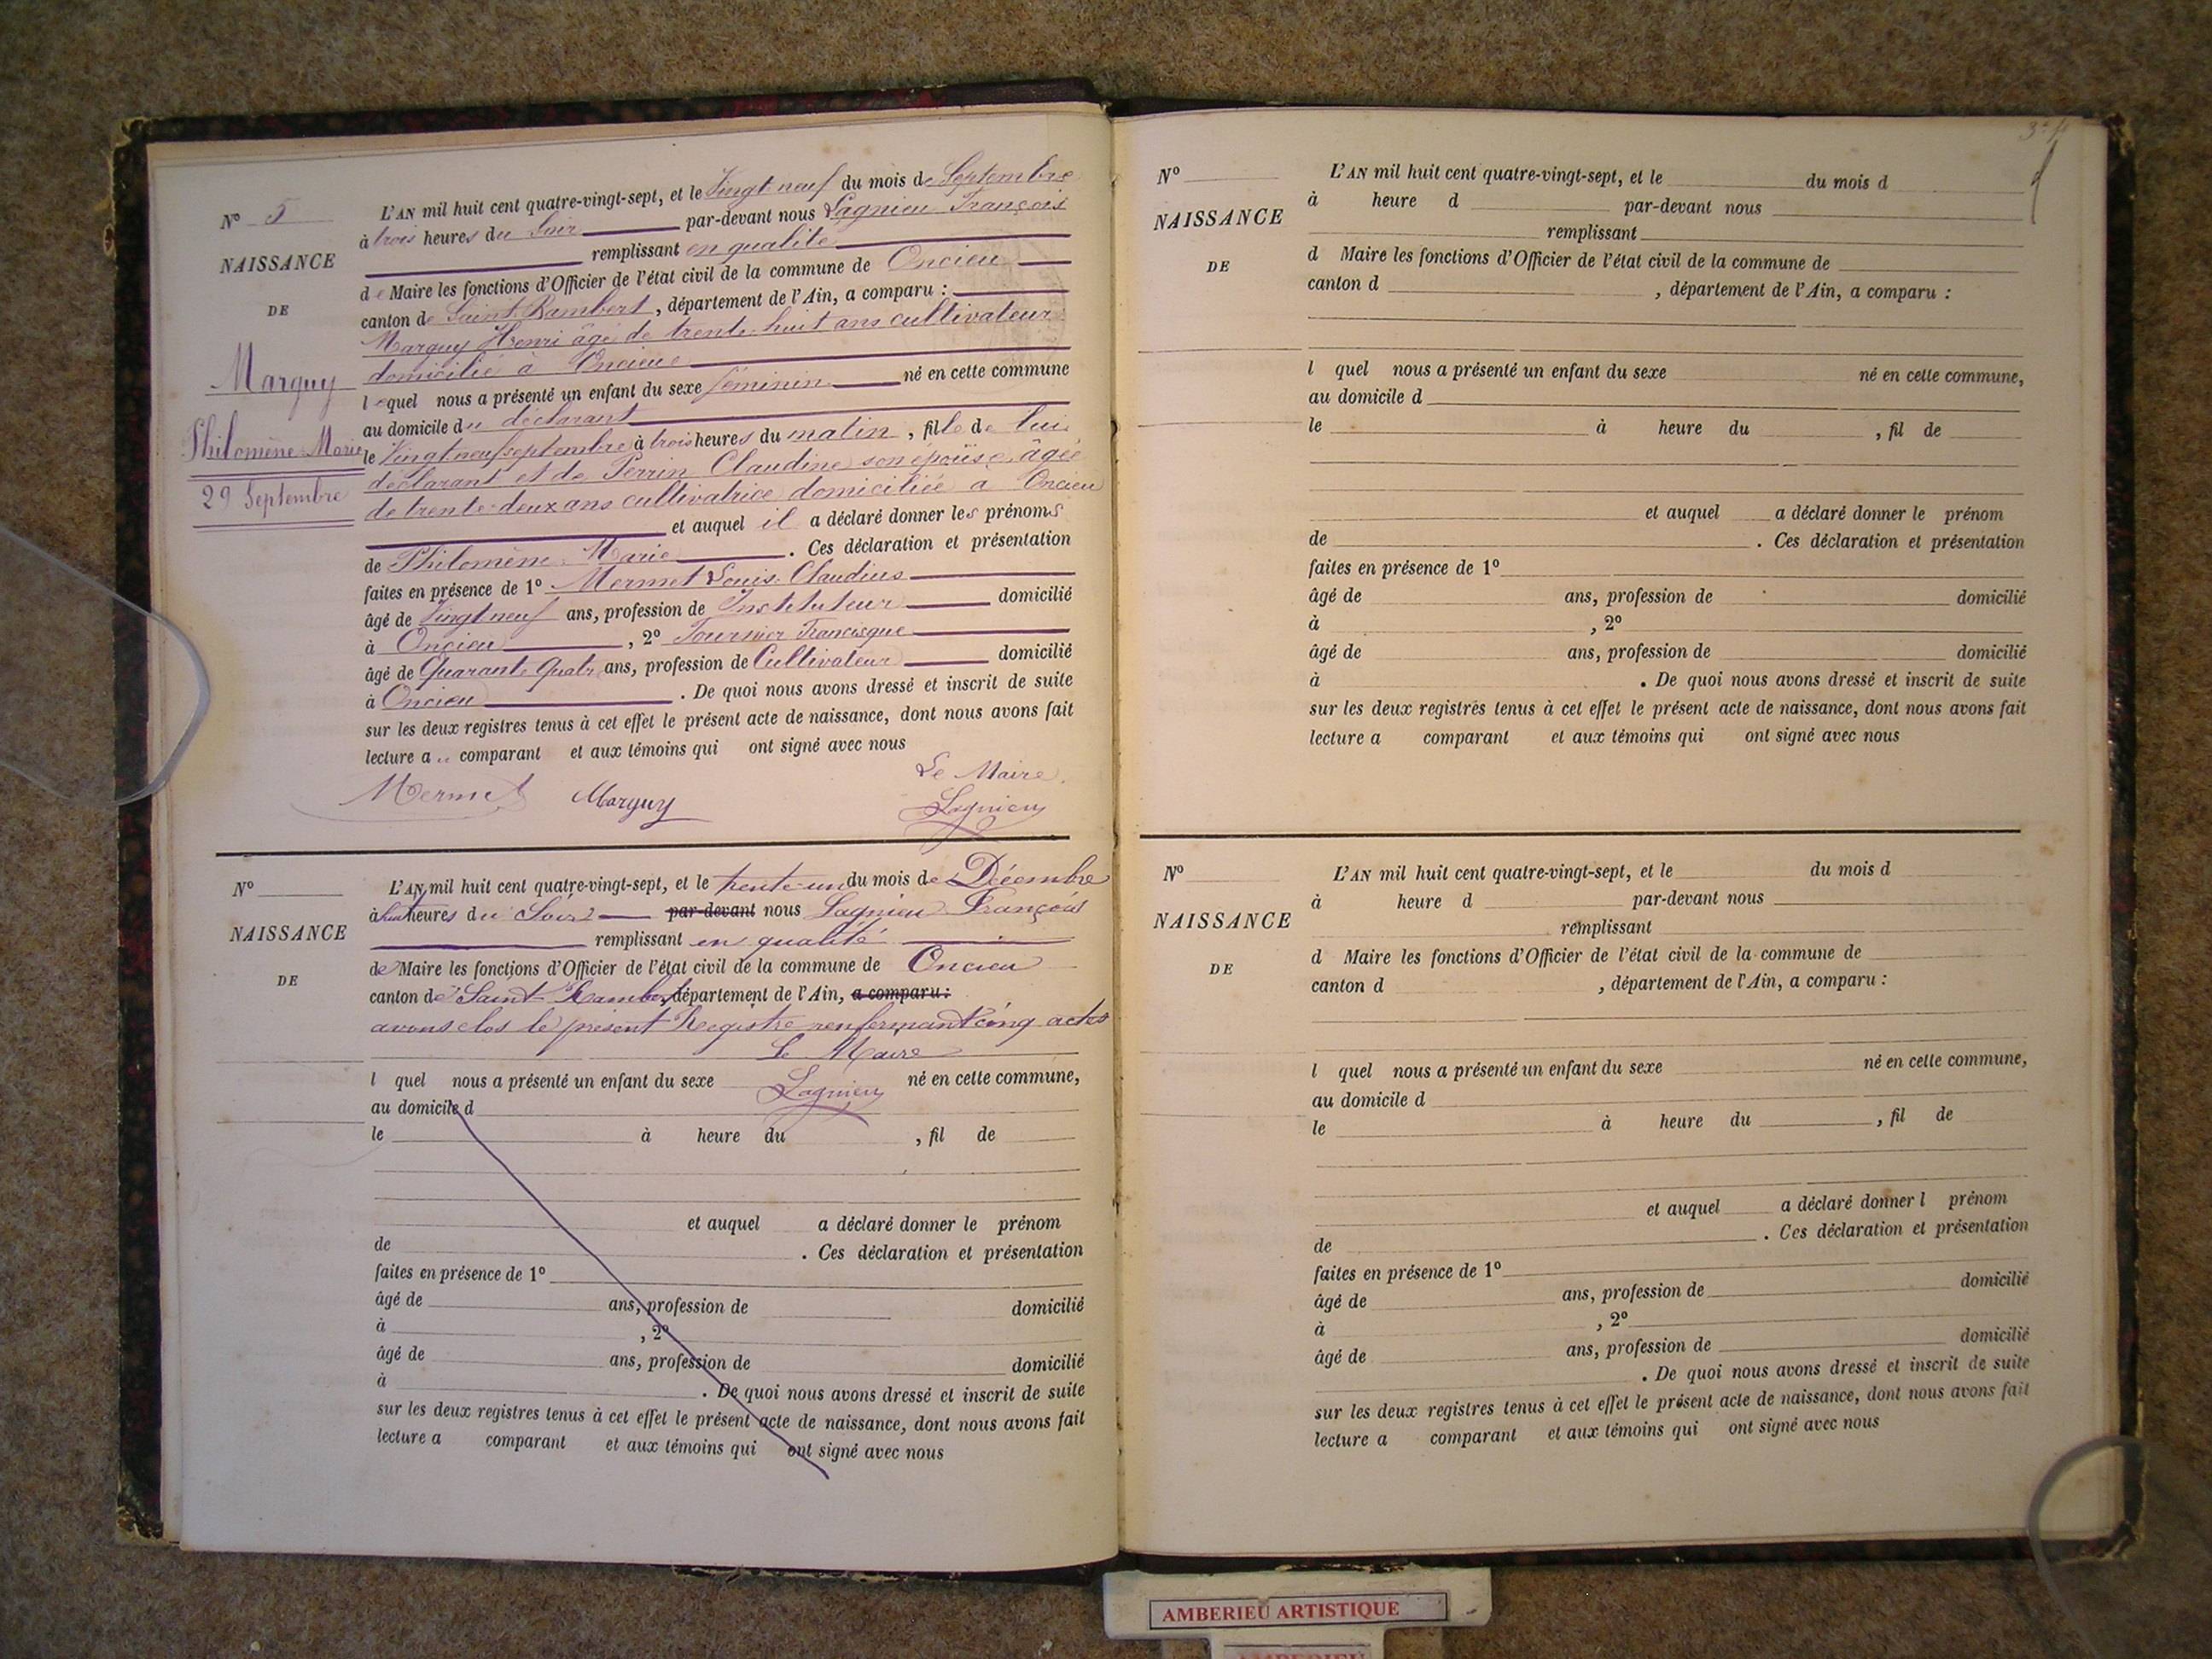 N° 5
NAISSANCE
DE
Marguy
Philomène Marie
29 Septembre
L'AN mil huit cent quatre-vingt-sept, et le Vingt neuf du mois de Septembre
à trois heures du Soir par-devant nous Lagnieu François
remplissant en qualité
de Maire les fonctions d'Officier de l'état civil de la commune de Oncieu
canton de Saint Rambert, département de l'Ain, a comparu :
Marguy Henri âgé de trente huit ans cultivateur
domicilié à Oncieu
lequel nous a présenté un enfant du sexe féminin né en cette commune
au domicile du déclarant
le Vingt neuf septembre à trois heures du matin, fille de lui
déclarant et de Perrin Claudine son épouse âgée
de trente-deux ans cultivatrice domiciliée a Oncieu
et auquel il a déclaré donner les prénoms
de Philomène Marie. Ces déclaration et présentation
faites en présence de 1° Mermet Louis Claudius
âgé de Vingt neuf ans, profession de Instituteur domicilié
à Oncieu, 2° Tournier Francisque
âgé de Quarante Quatre ans, profession de Cultivateur domicilié
à Oncieu. De quoi nous avons dressé et inscrit de suite
sur les deux registres tenus à cet effet le présent acte de naissance, dont nous avons fait
lecture au comparant et aux témoins qui ont signé avec nous
Le Maire
Mermet Marguy Lagnieu
N°
NAISSANCE
DE
L'AN mil huit cent quatre-vingt-sept, et le trente-un du mois de Décembre
à huit heures du Soir par-devant nous Lagnieu François
remplissant en qualité
de Maire les fonctions d'Officier de l'état civil de la commune de Oncieu
canton de Saint-Rambert, département de l'Ain, a comparu :
avons clos le présent Registre renfermant cinq actes
Le Maire
l quel nous a présenté un enfant du sexe Lagnieu né en cette commune,
au domicile d
le à heure du , fil de
et auquel a déclaré donner le prénom
de . Ces déclaration et présentation
faites en présence de 1°
âgé de ans, profession de domicilié
à , 2°
âgé de ans, profession de domicilié
à . De quoi nous avons dressé et inscrit de suite
sur les deux registres tenus à cet effet le présent acte de naissance, dont nous avons fait
lecture a comparant et aux témoins qui ont signé avec nous
N°
NAISSANCE
DE
L'AN mil huit cent quatre-vingt-sept, et le du mois d
à heure d par-devant nous
remplissant
d Maire les fonctions d'Officier de l'état civil de la commune de
canton d , département de l'Ain, a comparu :
l quel nous a présenté un enfant du sexe né en cette commune,
au domicile d
le à heure du , fil de
et auquel a déclaré donner le prénom
de . Ces déclaration et présentation
faites en présence de 1°
âgé de ans, profession de domicilié
à , 2°
âgé de ans, profession de domicilié
à . De quoi nous avons dressé et inscrit de suite
sur les deux registres tenus à cet effet le présent acte de naissance, dont nous avons fait
lecture a comparant et aux témoins qui ont signé avec nous
N°
NAISSANCE
DE
L'AN mil huit cent quatre-vingt-sept, et le du mois d
à heure d par-devant nous
remplissant
d Maire les fonctions d'Officier de l'état civil de la commune de
canton d , département de l'Ain, a comparu :
l quel nous a présenté un enfant du sexe né en cette commune,
au domicile d
le à heure du , fil de
et auquel a déclaré donner l prénom
de . Ces déclaration et présentation
faites en présence de 1°
âgé de ans, profession de domicilié
à , 2°
âgé de ans, profession de domicilié
. De quoi nous avons dressé et inscrit de suite
sur les deux registres tenus à cet effet le présent acte de naissance, dont nous avons fait
lecture a comparant et aux témoins qui ont signé avec nous
AMBERIEU ARTISTIQUE
AMBERIEU